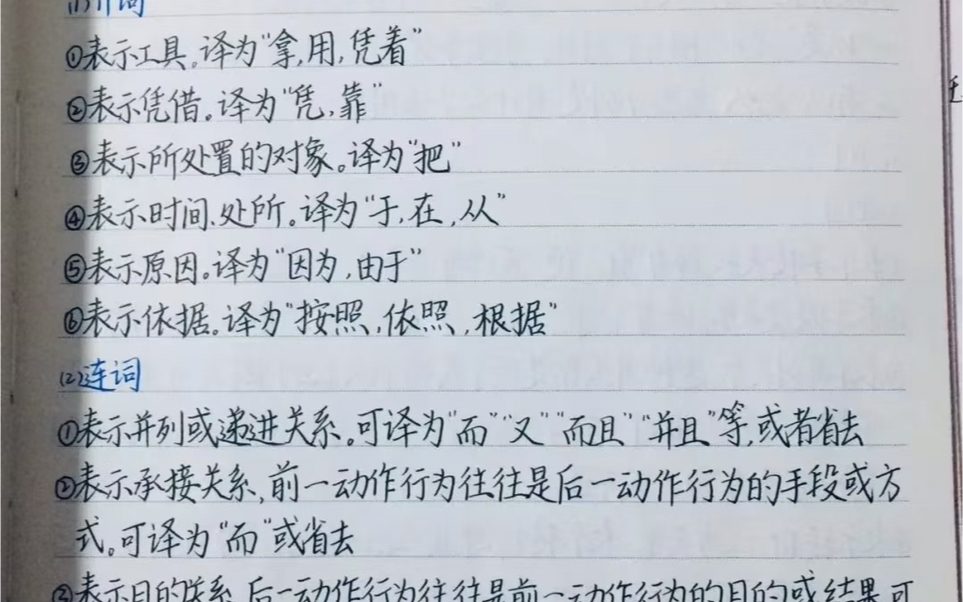 (1)介词
①表示工具。译为“拿,用,凭着”
②表示凭借。译为“凭,靠”
③表示所处置的对象。译为“把”
④表示时间、处所。译为“于,在,从”
⑤表示原因。译为“因为,由于”
⑥表示依据。译为“按照,依照,根据”
(2)连词
①表示并列或递进关系。可译为“而”“又”“而且”“并且”等,或者省去
②表示承接关系,前一动作行为往往是后一动作行为的手段或方
式。可译为“而”或省去
③表示目的关系,后一动作行为往往是前一动作行为的目的或结果,可